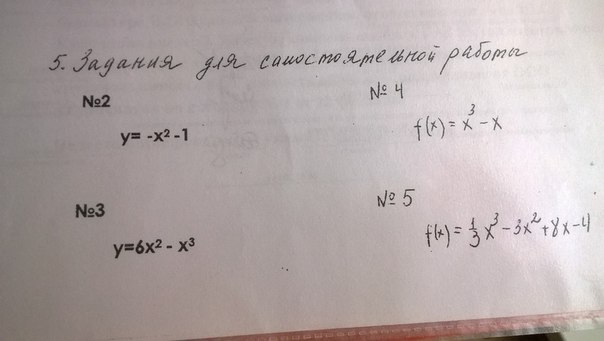 5. Задания для самостоятельной работы
№2
y= -x² -1
№3
y=6x² - x³
№ 4
f(x) = x³ - x
№ 5
f(x) = 1/3 x³ - 3x² + 8x - 4